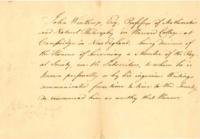 John Winthrop, Esq. Professor of Mathematics
and Natural Philosophy in Harvard College at
Cambridge in New England, being desirous of
the Honour of becoming a Member of the Royal
Society, we the Subscribers, to whom he is
known personally or by his ingenious Writings
communicated from time to time to the Society,
do recommend him as worthy that Honour.